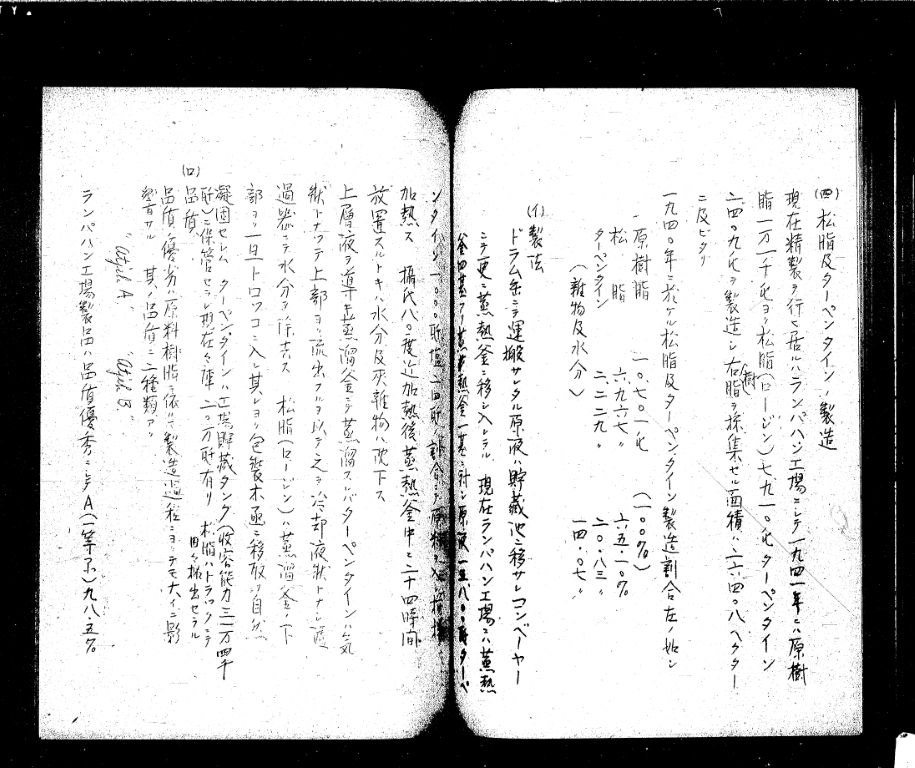 (四) 松脂及ターペンタインノ製造
現在精製ヲ行ヒ居ルハランパハン工場ニシテ一九四一年ニハ原樹
脂一万一千屯ヨリ松脂(ロージン)七九一〇屯ターペンタイン
二四〇九屯ヲ製造シ右樹脂ヲ採集セル面積ハ二六四〇八ヘクター
ニ及ビタリ
一九四〇年ニ於ケル松脂及ターペンタイン製造割合左ノ如シ
原樹脂 一〇七〇一屯 (一〇〇%)
松脂 六九六七〃 六五・一〇%
ターペンタイン 二二二九〃 二〇・八三〃
(雑物及水分) 一四・〇七〃
(イ) 製法
ドラム缶ニテ運搬サレタル原液ハ貯蔵池ニ移サレコンベーヤー
ニテ更ニ蒸熱釜ニ移シ入レラル 現在ランパハン工場ニハ蒸熱
釜四基アリ蒸熱釜一基ニ対シ原液一五八〇〇瓩ターペ
ンタイン一〇〇〇瓩塩一四瓩ノ割合ニテ原液ヲ入レ
加熱ス 攝氏八〇度迄加熱後蒸熱釜中ニ二十四時間
放置スルトキハ水分及灰雑物ハ沈下ス
上層液ヲ導キ蒸溜釜ニテ蒸溜スレバターペンタインハ気
状トナツテ上部ヨリ流出スルヲ以テ之ヲ冷却液状トナシ濾
過器ニテ水分ヲ除去ス 松脂(ロージン)ハ蒸溜釜ノ下
部ヨリ一旦トロツコニ入レ其レヨリ包装木函ニ移取リ自然
凝固セシム ターペンタインハ工場貯蔵タンク(收容能力三一万四千
瓩)ニ保管セラレ現在々庫二〇万瓩有リ 松脂ハトラツクニテ
搬出セラル
(ロ) 品質
品質ノ優劣ハ原料樹脂ニ依ルモ製造過程ニヨツテモ大イニ影
響サル 其ノ品質ニ二種類アリ
〃Agil A〃 〃Agil B〃
ランパハン工場製品ハ品質優秀ニシテA(一等品)九八・五%